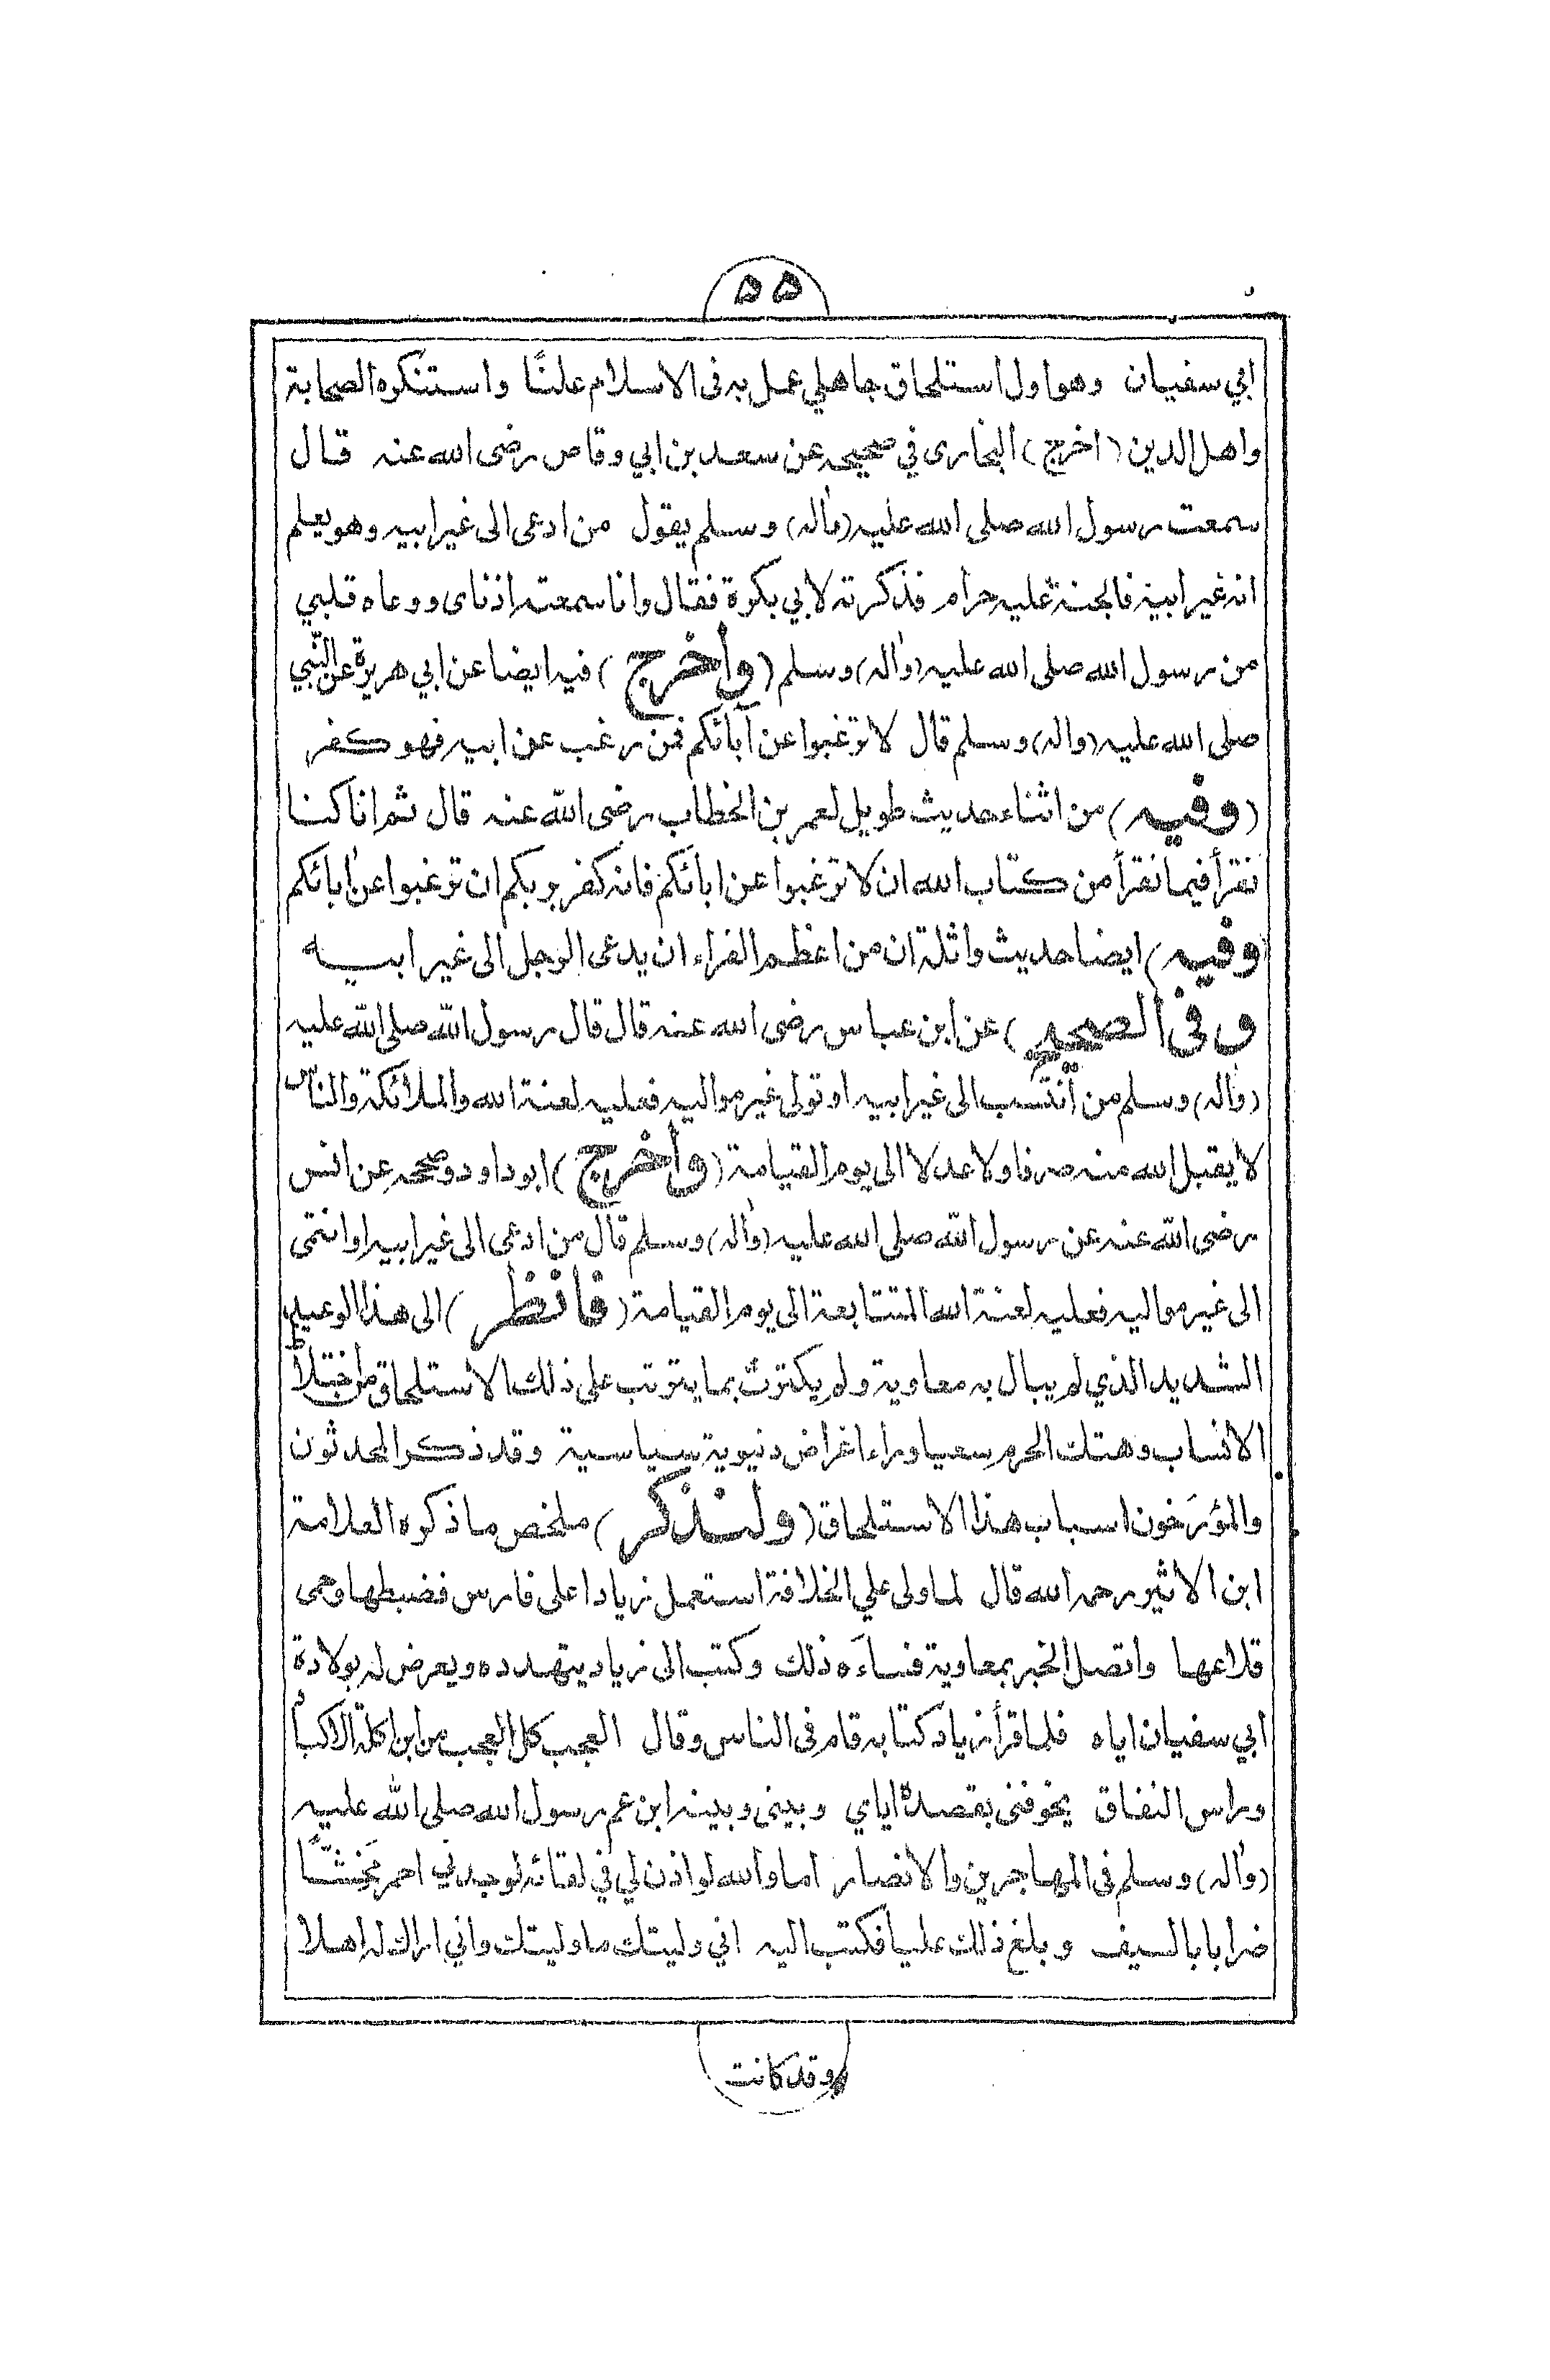 ٥٥
ابي سفيان وهو اول استلحاق جاهلي عمل به فى الاسلام علنًا واستنكره الصحابة
واهل الدين (اخرج) البخارى في صحيحه عن سعد بن ابي وقاص رضى الله عنه قال
سمعت رسول الله صلى الله عليه (وآله) وسلم يقول من ادعى الى غير ابيه وهو يعلم
انه غير ابيه فالجنة عليه حرام فذكرته لابي بكرة فقال وانا سمعته اذناى ووعاه قلبي
من رسول الله صلى الله عليه (وآله) وسلم (وأخرج) فيه ايضا عن ابي هريرة عن النّبي
صلى الله عليه (وآله) وسلم قال لا ترغبوا عن آبائكم فمن رغب عن ابيه فهو كفر
(وفيه) من اثناء حديث طويل لعمر بن الخطاب رضى الله عنه قال ثم انا كنا
نقرأ فيما نقرأ من كتاب الله ان لا ترغبوا عن ابائكم فانه كفر بربكم ان ترغبوا عن ابائكم
وفيه) ايضا حديث واثلة ان من اعظم الفراء ان يدعى الرجل الى غير ابيه
وفى الصحيح) عن ابن عباس رضى الله عنه قال قال رسول الله صلى الله عليه
(وآله) وسلم من انتسب الى غير ابيه او تولى غير مواليه فعليه لعنة الله والملائكة والناس
لا يقبل الله منه صرفا ولا عدلا الى يوم القيامة (وأخرج) ابو داود وصححه عن انس
رضى الله عنه عن رسول الله صلى الله عليه (وآله) وسلم قال من ادعى الى غير ابيه او انتمى
الى غير مواليه فعليه لعنة الله المتتابعة الى يوم القيامة (فانظر) الى هذا الوعيد
الشديد الذي لم يبال به معاوية ولم يكترث بما يترتب على ذلك الاستلحاق من اختلاط
الانساب وهتك الحرم سعيا وراء اغراض دنيوية سياسية وقد ذكر المحدثون
والمؤرخون اسباب هذا الاستلحاق (ولنذكر) ملخص ما ذكره العلامة
ابن الاثير رحمه الله قال لما ولى علي الخلافة استعمل زيادا على فارس فضبطها وحمى
قلاعها واتصل الخبر بمعاوية فساءه ذلك وكتب الى زياد يتهدده ويعرض له بولادة
ابي سفيان اياه فلما قرأ زياد كتابه قام فى الناس وقال العجب كل العجب من ابن اكلة الاكباد
وراس النفاق يخوفنى بقصده اياي وبينى وبينه ابن عم رسول الله صلى الله عليه
(وآله) وسلم فى المهاجرين والانصار اما والله لو اذن لي في لقائه لوجدني احمر مخشًّا
ضرابا بالسيف وبلغ ذلك عليا فكتب اليه اني وليتك ما وليتك واني اراك له اهلا
وقد كانت